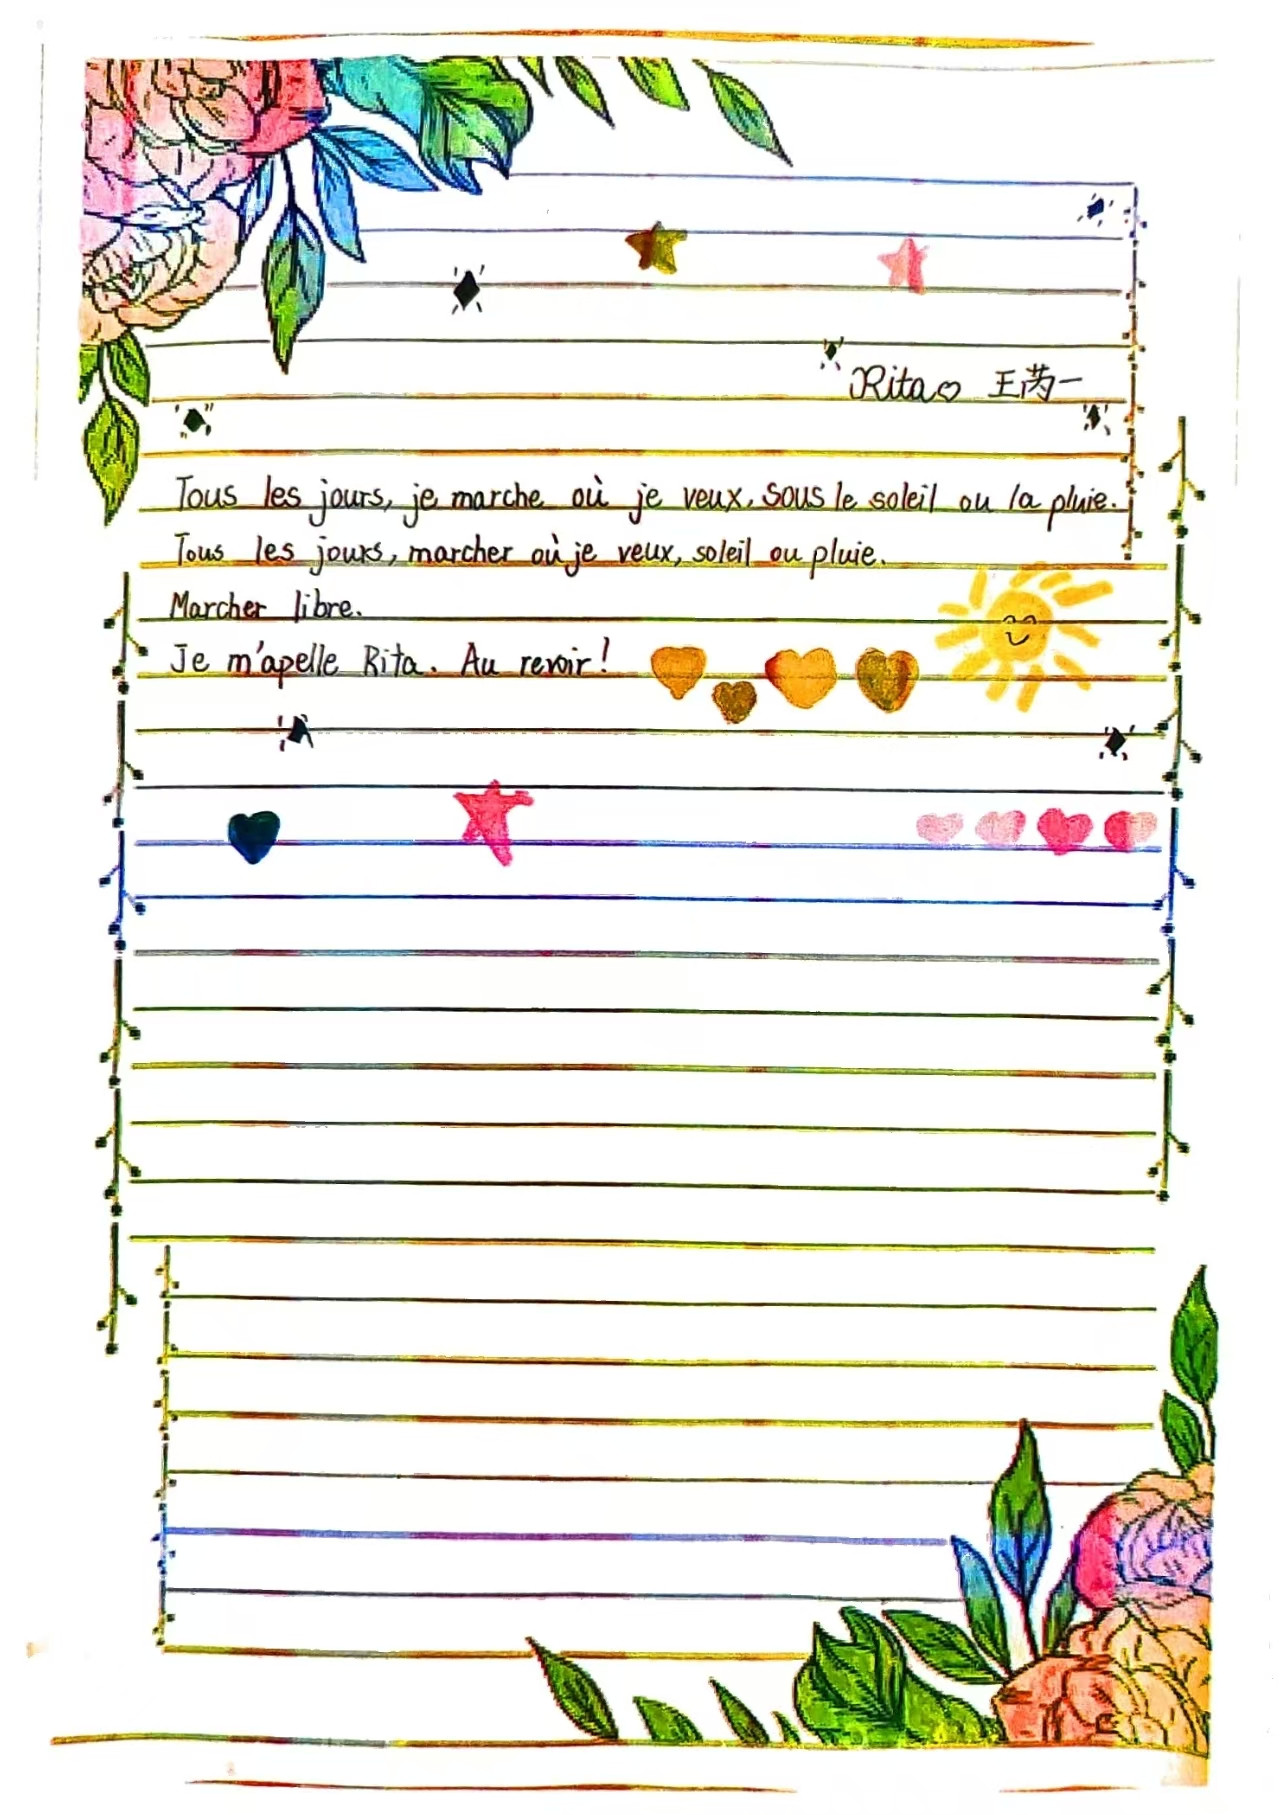 Rita♡ 王芮一
Tous les jours, je marche où je veux, sous le soleil ou la pluie.
Tous les jours, marcher où je veux, soleil ou pluie.
Marcher libre.
Je m'apelle Rita. Au revoir!